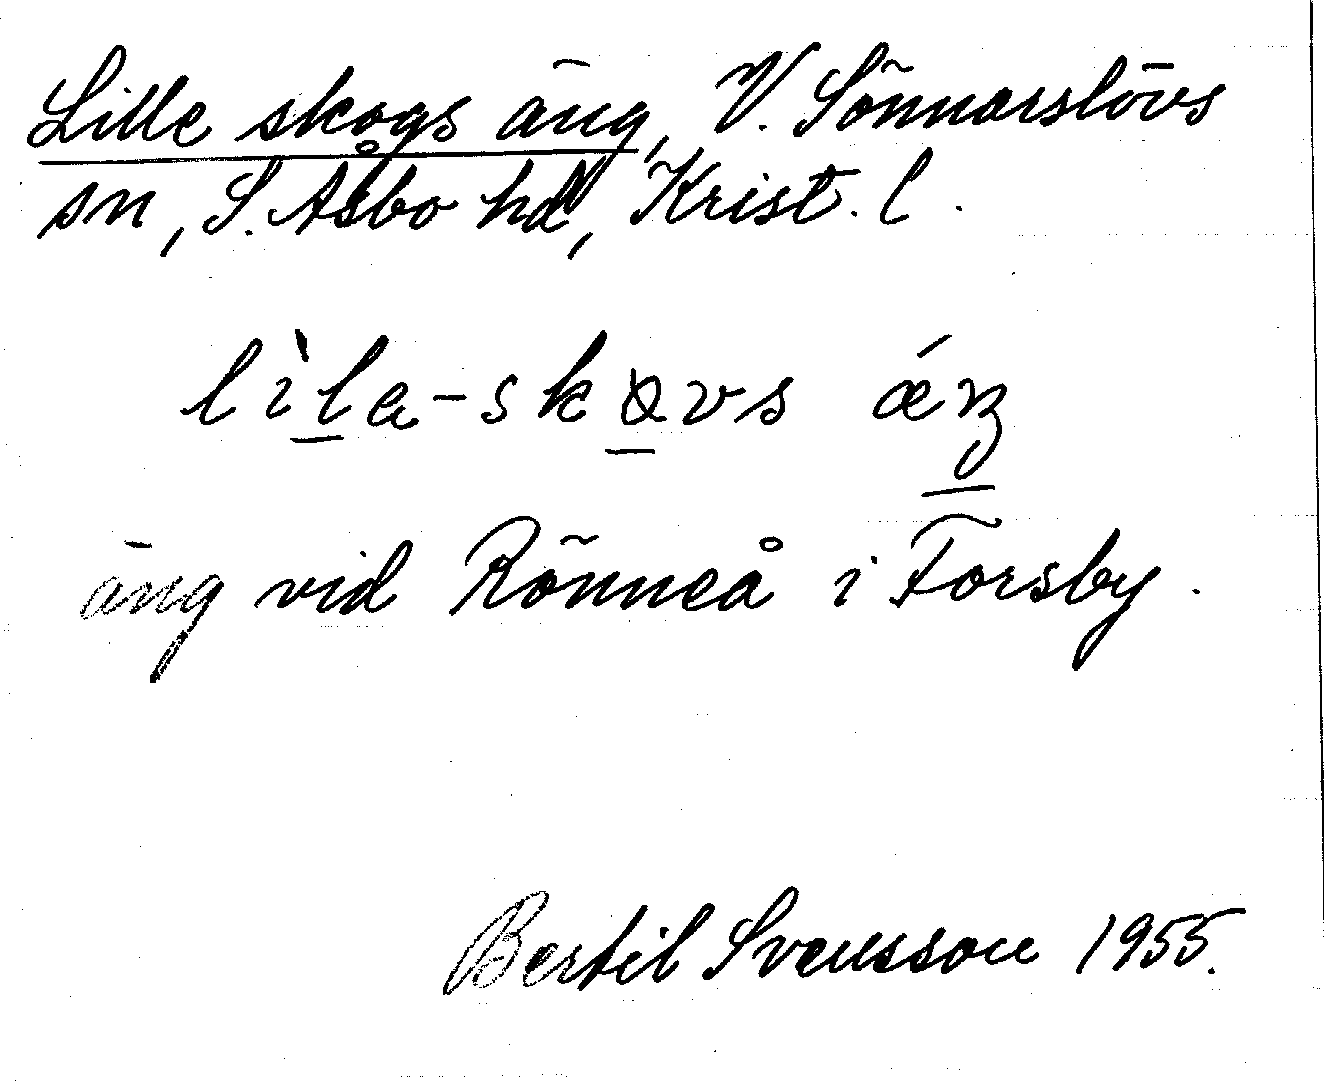 Lille skogs äng, V. Sönnarslövs
sn, S. Åsbo hd, Krist. l.
lìla-skɷvs ǽŋ
äng vid Rönneå i Forsby.
Bertil Svensson 1955.